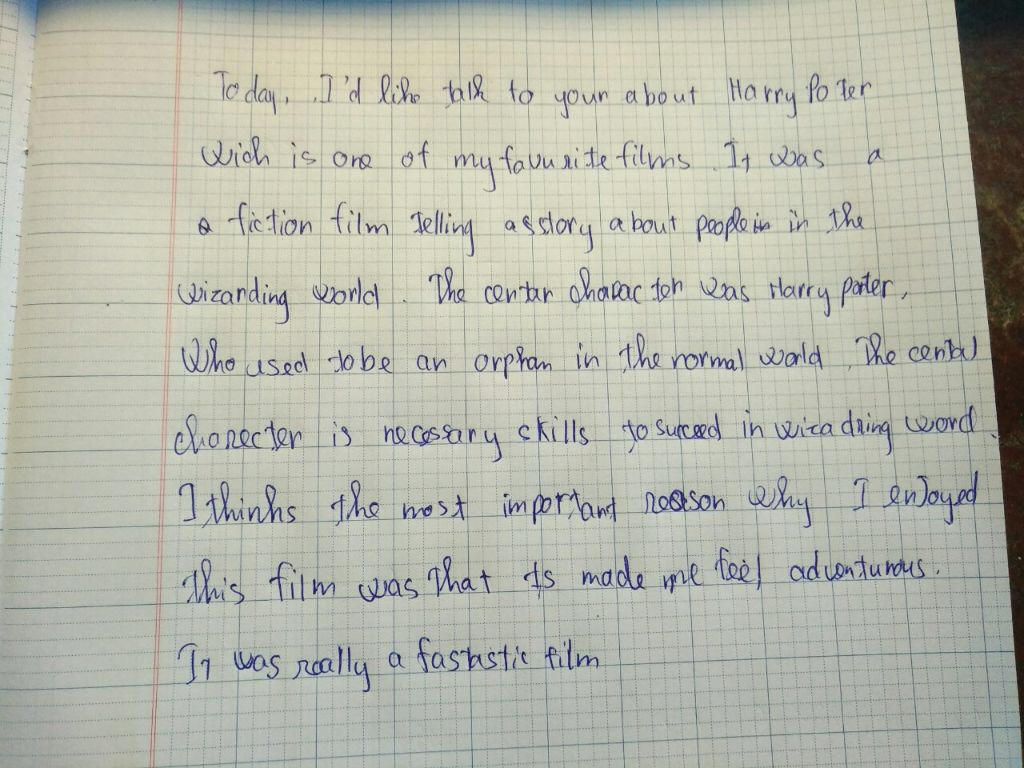 Today, I'd like talk to your about Harry Poter
wich is one of my favurite films. It was a
a fiction film telling a sstory about people in in the
wizarding world. The centar character was Harry poter,
Who used to be an orphan in the normal world. The central
charecter is necessary skills to succeed in wizadring word.
I thinhs the most important reason why I enjoyed
this film was that its made me feel adventurous.
It was really a fastastic film